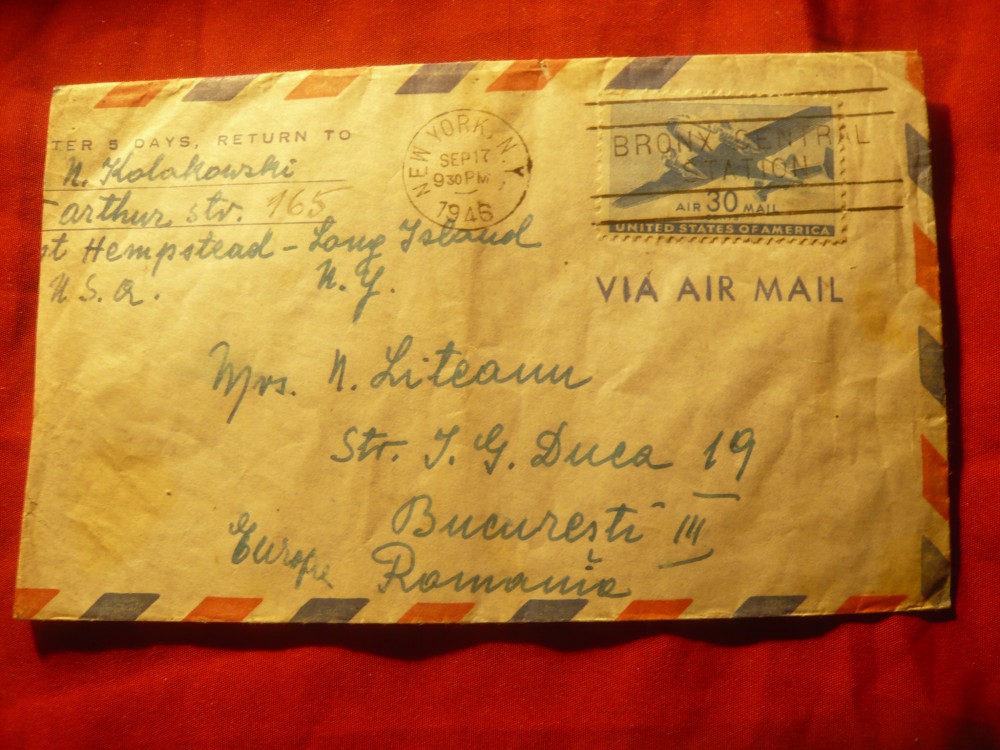 TER 5 DAYS, RETURN TO
N. Kolakowski
arthur str. 165
st Hempstead - Long Island
U.S.A. N.Y.
NEW YORK, N.Y.
SEP 17
9 30 PM
1946
BRONX CENTRAL
STATION
AIR 30 MAIL
UNITED STATES OF AMERICA
VIA AIR MAIL
Mrs. N. Liteanu
Str. I. G. Duca 19
București III
Europe Romania